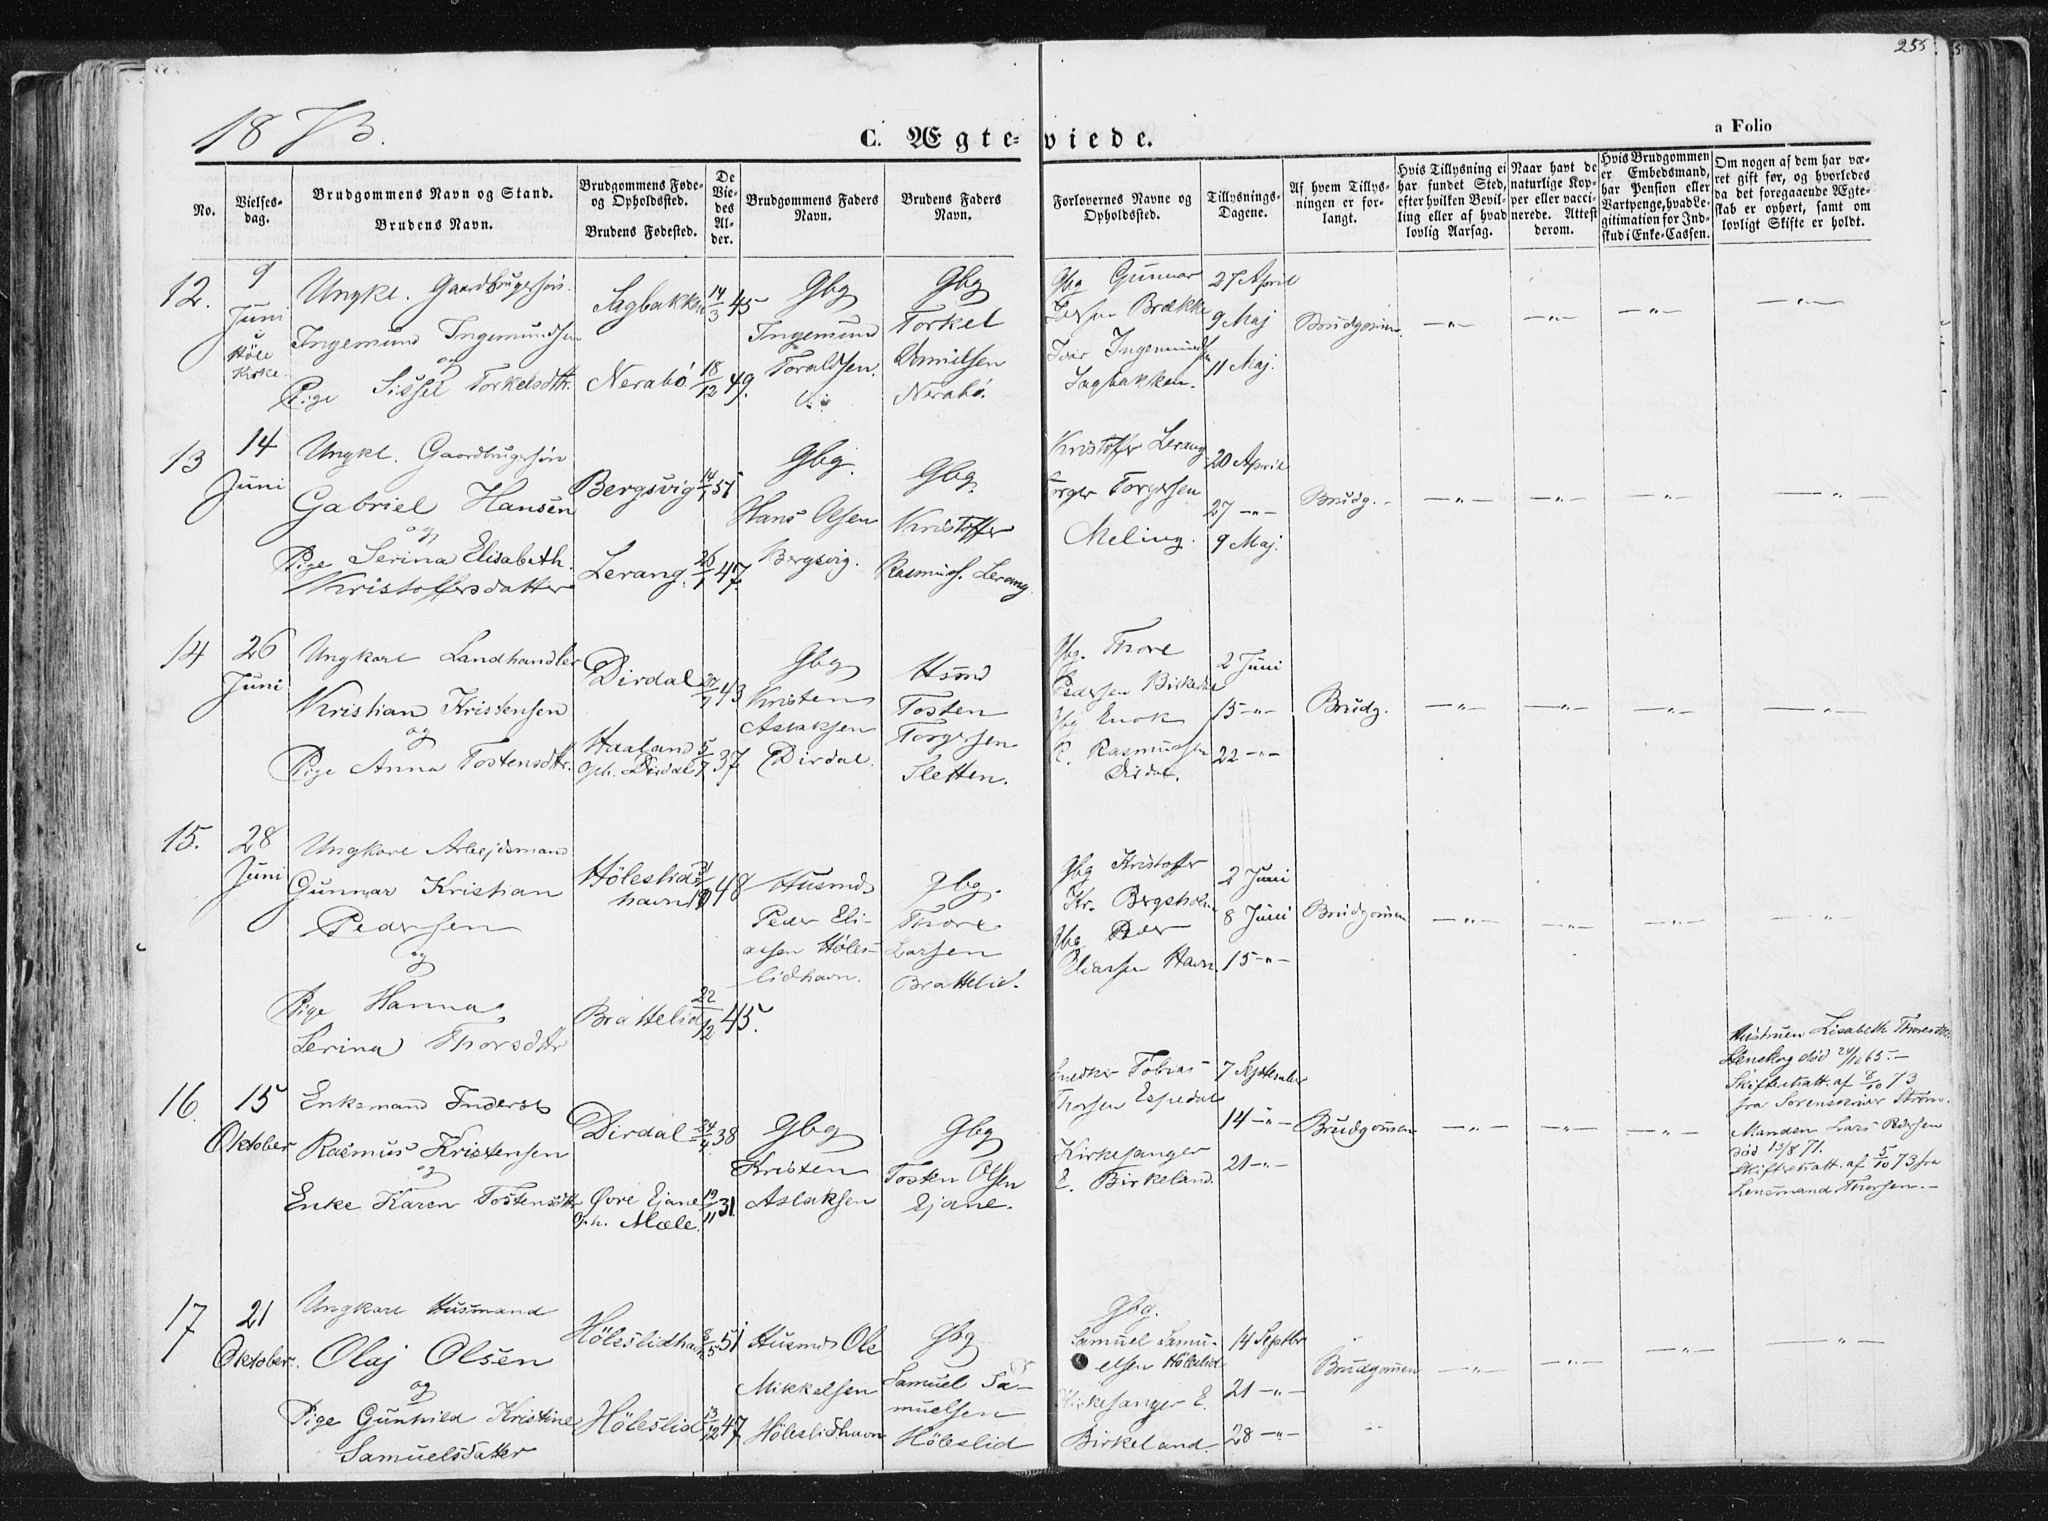 255
1873.
C. Ægteviede.
a Folio
No.
Vielsesdag.
Brudgommens Navn og Stand.
Brudens Navn.
Brudgommens Føde- og Opholdssted.
Brudens Fødested.
De Viedes Alder.
Brudgommens Faders Navn.
Brudens Faders Navn.
Forlovernes Navne og Opholdssted.
Tillysnings-Dagene.
Af hvem Tillysningen er forlangt.
Hvis Tillysning ei har fundet Sted, efter hvilken Bevilling eller af hvad lovlig Aarsag.
Naar havt de naturlige Kopper eller vaccinerede. Attest derom.
Hvis Brudgommen er Embedsmand, har Pension eller Vartpenge, hvad Legitimation for Indstud i Enke-Cassen.
Om nogen af dem har været gift før, og hvorledes da det foregaaende Ægteskab er ophørt, samt om lovligt Skifte er holdt.
12.
9 Juni i Höle Kirke.
Ungkl. Gaardbrugersøn.
Ingemund Ingemundsen
og
Pige Sissel Torkelsdtr.
Sagbakken 14/3 45
Nerabö 18/12 49.
Gbg Ingemund Toraldsen
Gbg Torkel Danielsen Nerabö.
Gbg Gunnar
Larsen Brække
Ivar Ingemundsen
Sagbakken.
27 April
9 Maj
11 Maj.
Brudgommen
13
14 Juni
Ungkl. Gaardbrugersøn
Gabriel Hansen
og
Pige Serina Elisabeth
Kristoffersdatter
Bergsvig 14/1 51
Lerang. 26/1 47.
Gbg. Hans Olsen Bergsvig.
Gbg. Kristoffer Rasmuss. Lerang
Kristoffer Lerang
Torger Torgersen
Meling.
20 April
27 -"-
9 Maj.
Brudg.
14
26 Juni
Ungkarl Landhandler
Kristian Kristensen
og
Pige Anna Tostensdtr.
Dirdal 27/7 43
Haaland Oph. Dirdal 5/7 37
Gbg Kristen Aslaksen Dirdal.
Husmd Tosten Torgersen Sletten.
Gbg. Thore
Pedersen Birkedal
Gbg Enok
R. Rasmussen
Dirdal.
2 Juni
15 -"-
22 -"-
Brudg.
15.
28 Juni
Ungkarl Arbejdsmand
Gunnar Kristian
Pedersen
og
Pige Hanna
Serina Thorsdtr
Höleslidhavn 48
Brattelid 22/12 45.
Husmd Peder Eliassen Höleslidhavn.
Gbg. Thore Larsen Brattelid.
Gbg Kristoffer
Kr. Bergsholm
Gbg Peder
Eliassen Havn
2 Juni
8 Juni
15 -"-
Brudgommen
16.
15 Oktober
Enkemand Inderst
Rasmus Kristensen
og
Enke Karen Tostensdtr
Dirdal 24/4 38
Øvre Ejane Oph. Mæle. 19/11 31.
Gbg Kristen Aslaksen
Gbg Tosten Olsen Ejane.
Snedker Tobias
Thorsen Espedal
Kirkesanger
E. Birkeland.
7 September
14 -"-
21 -"-
Brudgommen
Hustruen Lisabeth Thoresdtr.
død 24/12 65.-
Skifteratt. af 8/10 73
fra Sorenskriver Ström.
Manden Lars Pedersen
død 13/8 71.
Skifteratt. af 5/10 73 fra
Lensmand Thorsen.-
17
21 Oktober.
Ungkarl Husmand
Olaj Olsen
og
Pige Gunhild Kristine
Samuelsdatter
Höleslidhavn 8/5 51
Höleslid 13/12 47
Husmd Ole Mikkelsen Höleslidhavn
Gbg Samuel Samuelsen Höleslid
Gbg.
Samuel Samuelsen Höleslid
Kirkesanger E.
Birkeland.
14 Septbr
21 -"-
28 -"-
Brudgommen